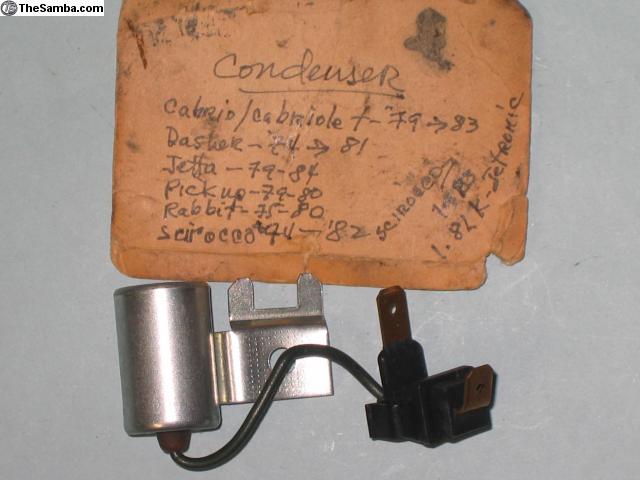 TheSamba.com
Condenser
Cabrio/Cabriolet-'79→83
Dasher-74→81
Jetta-79-84
Pickup-79-80
Rabbit-75-80
Scirocco '74-'82
SCIROCCO/
1983
1.8L K-JETRONIC